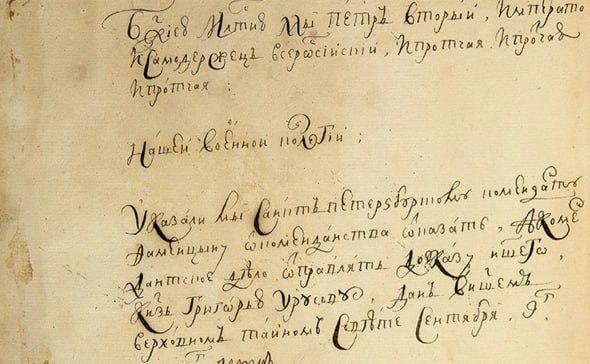 Бжиею млтию мы Петръ вторый, императо
и самодержецъ всеросiйскiй, и протчая и протчая
и протчая:
Нашей военной колегiи:
Указали мы санктъ петерзбургскому коменданту
от комендантства отказать, а коме
дантское дѣло отправлять до указу ншего,
Кнзь григорью Урусову, данъ в нашемъ
верховномъ тайномъ совѣте Сентября, 9г